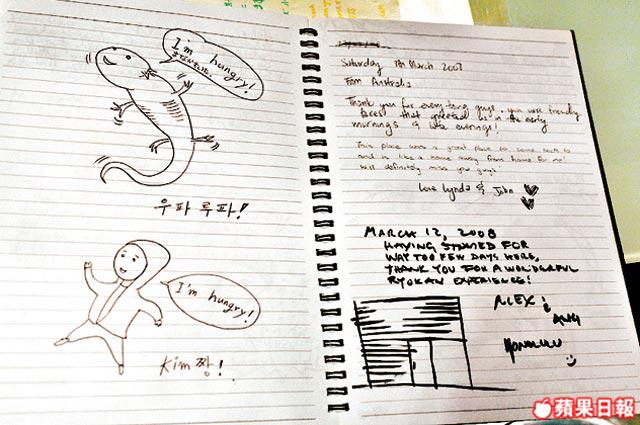 I'm hungry!
우파루파!
I'm hungry!
Kim짱!
Saturday March 2008
From Australia
Thank you for everything guys, you were friendly
faces that greeted us in the early
mornings & late evenings!
This place was a great place to come back to
and is like a home away from home for me!
Will definitely miss you guys
Love Lynda & John
MARCH 12, 2008
HAVING STAYED FOR
WAY TOO FEW DAYS HERE,
THANK YOU FOR A WONDERFUL
RYOKAN EXPERIENCE!
ALEX &
HONOLULU
蘋果日報